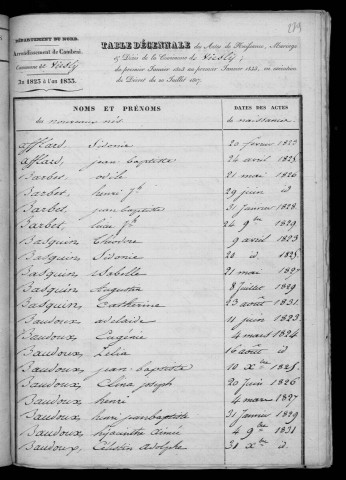 DÉPARTEMENT DU NORD.
Arrondissement de Cambrai.
Commune de Viesly
De 1823 à l'an 1833.
TABLE DÉCENNALE des Actes de Naissance, Mariage
et Décès de la Commune de Viesly,
du premier Janvier 1823 au premier Janvier 1833, en exécution
du Décret du 20 Juillet 1807.
NOMS ET PRÉNOMS
des nouveaux nés
DATES DES ACTES
de naissance
Afflard, Sidonie 20 février 1823
Afflard, jean baptiste 24 avril 1825
Barbet, odile 21 mai 1826
Barbet, henri jh 29 juin id
Barbet, jean baptiste 31 Janvier 1828
Barbet, jh 24 9bre 1829
Basquin, théodore 9 avril 1823
Basquin, Sidonie 20 id 1825
Basquin, isabelle 21 mai 1827
Basquin, Augustin 8 Juillet 1829
Basquin, Catherine 23 août 1831
Baudoux, adelaïde 11 juin 1823
Baudoux, Eugénie 4 mars 1824
Baudoux, Zélia 16 août id
Baudoux, jean baptiste 10 Xbre 1825
Baudoux, Elina joseph 20 juin 1826
Baudoux, henri 4 mars 1827
Baudoux, henri jean baptiste 31 janvier 1829
Baudoux, hyacinthe aimé 4 9bre 1831
Baudoux, Célestin adolphe 31 Xbre id